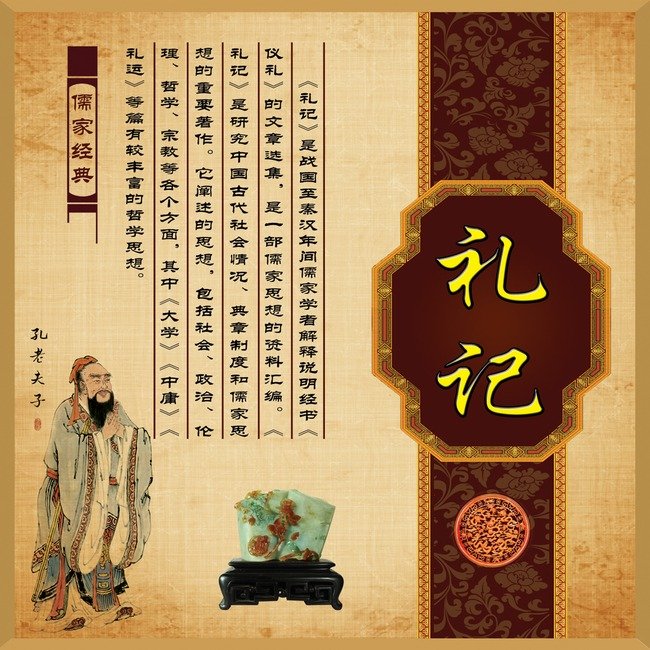 礼记
《礼记》是战国至秦汉年间儒家学者解释说明经书《
仪礼》的文章选集，是一部儒家思想的资料汇编。《
礼记》是研究中国古代社会情况、典章制度和儒家思
想的重要著作。它阐述的思想，包括社会、政治、伦
理、哲学、宗教等各个方面，其中《大学》《中庸》《
礼运》等篇有较丰富的哲学思想。
儒家经典
孔老夫子